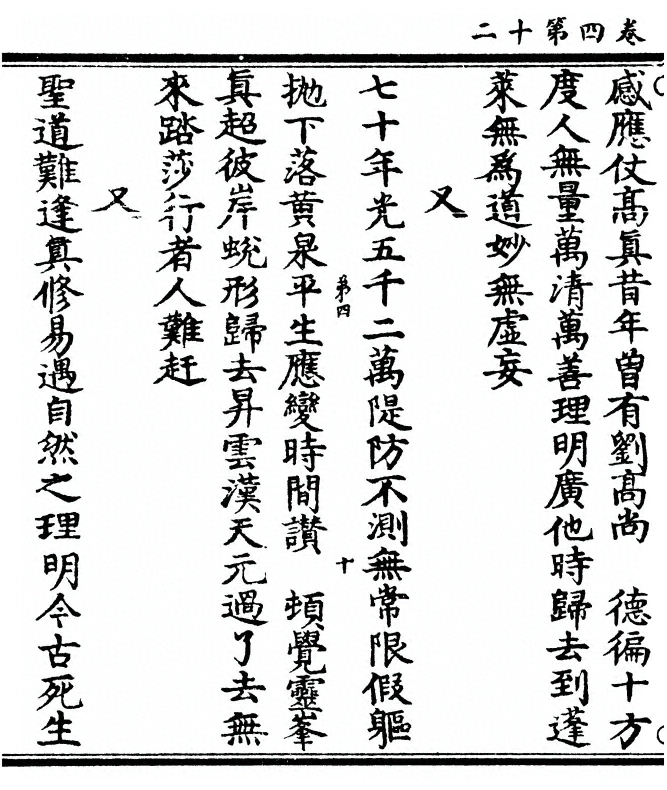 卷四第十二
感應仗髙眞昔年曾有劉髙尚　德徧十方
度人無量萬清萬善理明廣他時歸去到蓬
萊無爲道妙無虛妄
又
七十年光五千二萬隄防不測無常限假軀
第四　十
抛下落黄泉平生應變時間讃　頓覺靈峯
眞超彼岸蛻形歸去昇雲漢天元過了去無
來踏莎行者人難赶
又
聖道難逢眞修易遇自然之理明今古死生